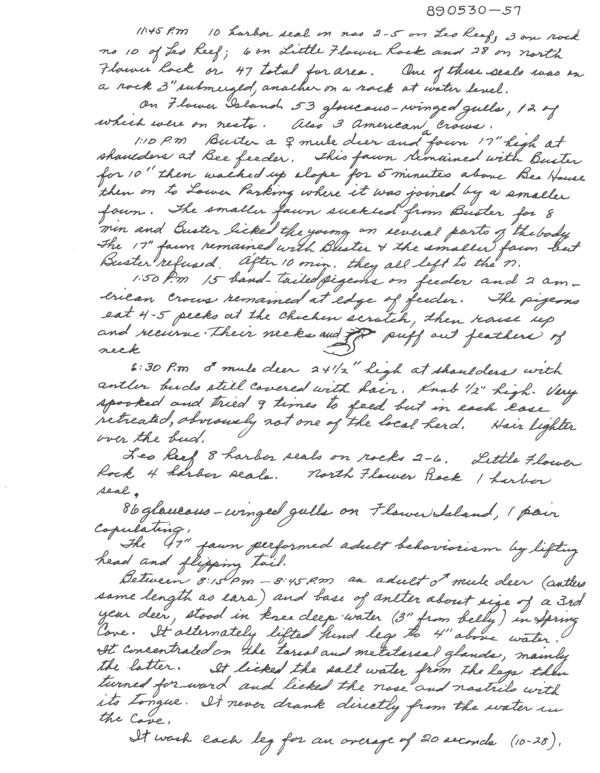 890530-57
11:45 P.M 10 harbor seal on nos 2-5 on Leo Reef, 3 on rock
no 10 of Leo Reef; 6 on Little Flower Rock and 28 on north
Flower Rock or 47 total for area. One of these seals was on
a rock 3" submerged, another on a rock at water level.
On Flower Island 53 glaucous-winged gulls, 12 of
which were on nests. Also 3 American Crows.
1:10 P.M Buster a ♀ mule deer and a fawn 17" high at
shoulders at Bee feeder. This fawn remained with Buster
for 10" then walked up slope for 5 minutes above Bee House
then on to Lower Parking where it was joined by a smaller
fawn. The smaller fawn suckled from Buster for 8
min and Buster licked the young on several parts of the body
The 17" fawn remained with Buster & the smaller fawn but
Buster refused. After 10 min. they all left to the N.
1:50 P.M 15 band-tailed pigeons on feeder and 2 am-
erican crows remained at edge of feeder. The pigeons
eat 4-5 pecks at the chicken scratch, then raise up
and recurve their necks and puff out feathers of
neck
6:30 P.m ♂ mule deer 24 1/2" high at shoulders with
antler buds still covered with hair. Knob 1/2" high. Very
spooked and tried 9 times to feed but in each case
retreated, obviously not one of the local herd. Hair lighter
over the bud.
Leo Reef 8 harbor seals on rocks 2-6. Little Flower
Rock 4 harbor seals. North Flower Rock 1 harbor
seal.
86 glaucous-winged gulls on Flower Island, 1 pair
copulating.
The 17" fawn performed adult behaviorism by lifting
head and flipping tail.
Between 8:15 P.m - 8:45 P.m an adult ♂ mule deer (antlers
same length as ears) and base of antler about size of a 3rd
year deer, stood in knee deep water (3" from belly) in Spring
Cove. It alternately lifted hind leg to 4" above water.
It concentrated on the tarsal and metatarsal glands, mainly
the latter. It licked the salt water from the legs then
turned forward and licked the nose and nostrils with
its tongue. It never drank directly from the water in
the Cove.
It wash each leg for an average of 20 seconds (10-28).